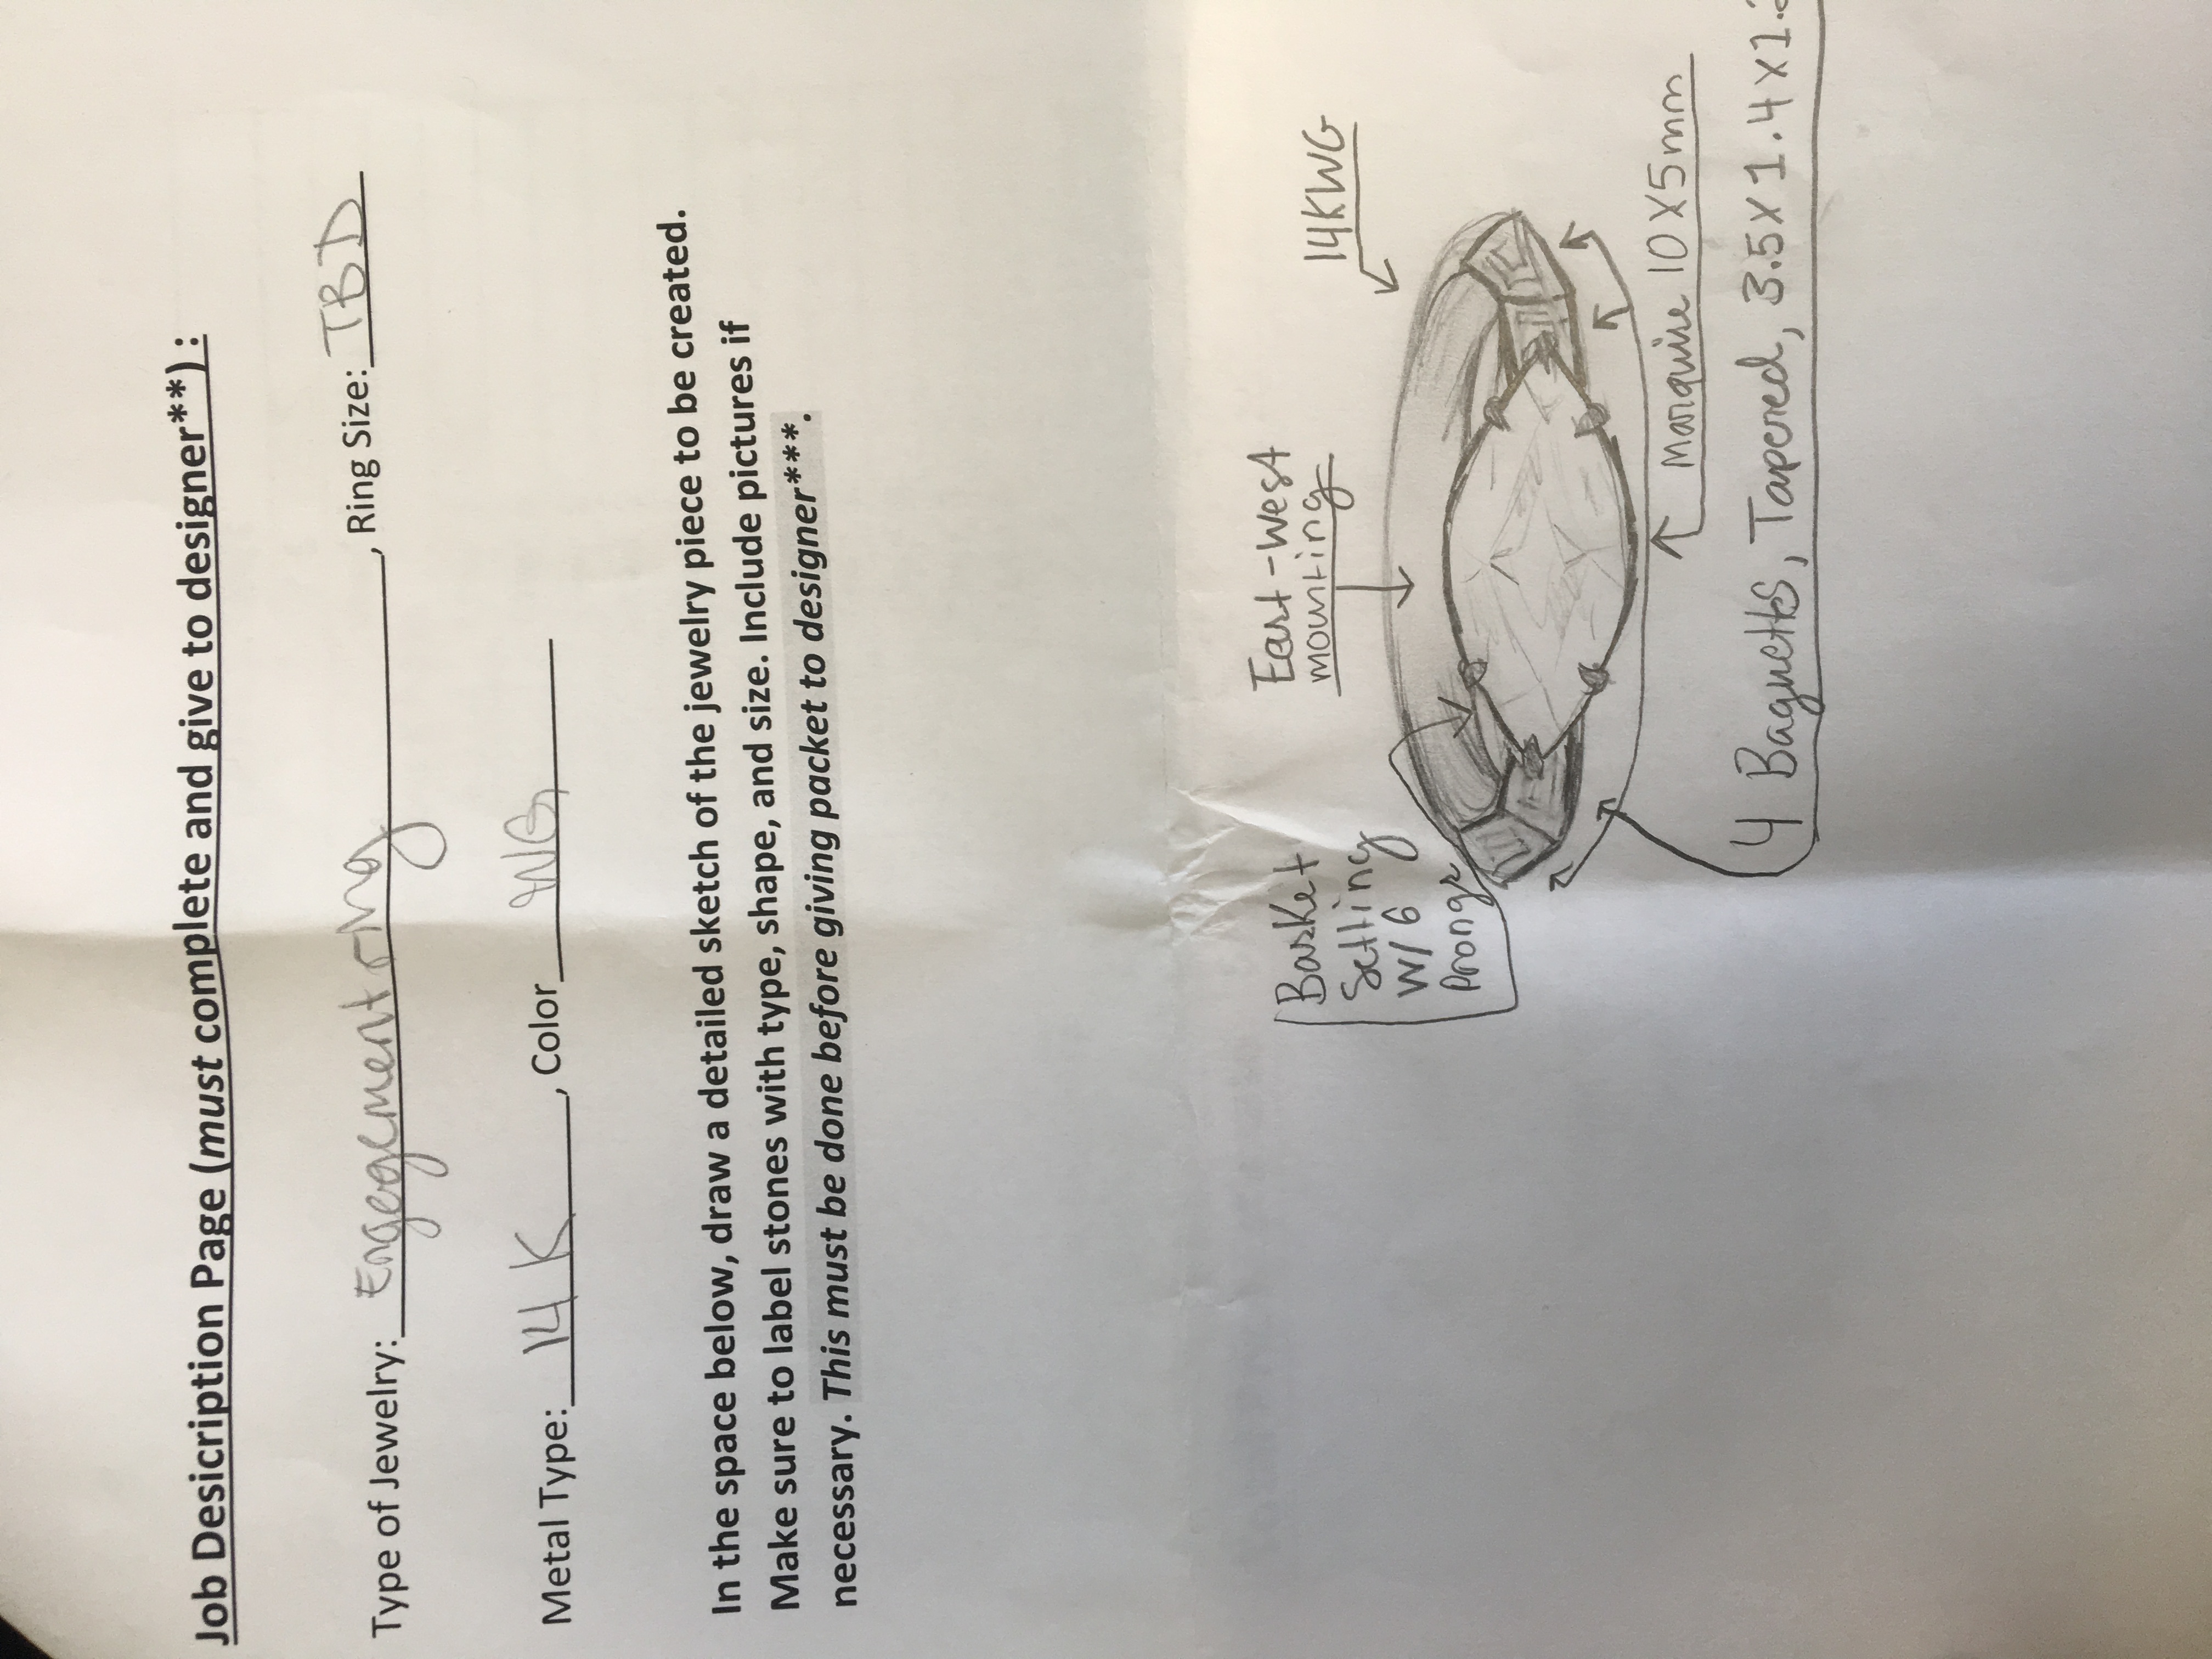 Job Desicription Page (must complete and give to designer**) :
Type of Jewelry: Engegement ring, Ring Size: TBD
Metal Type: 14 K, Color WG
In the space below, draw a detailed sketch of the jewelry piece to be created.
Make sure to label stones with type, shape, and size. Include pictures if
necessary. This must be done before giving packet to designer***.
Basket
Setting
W/ 6
Prongs
East-west
mounting
14KWG
Marquise 10X5mm
4 Baguetts, Tapered, 3.5X1.4X1.